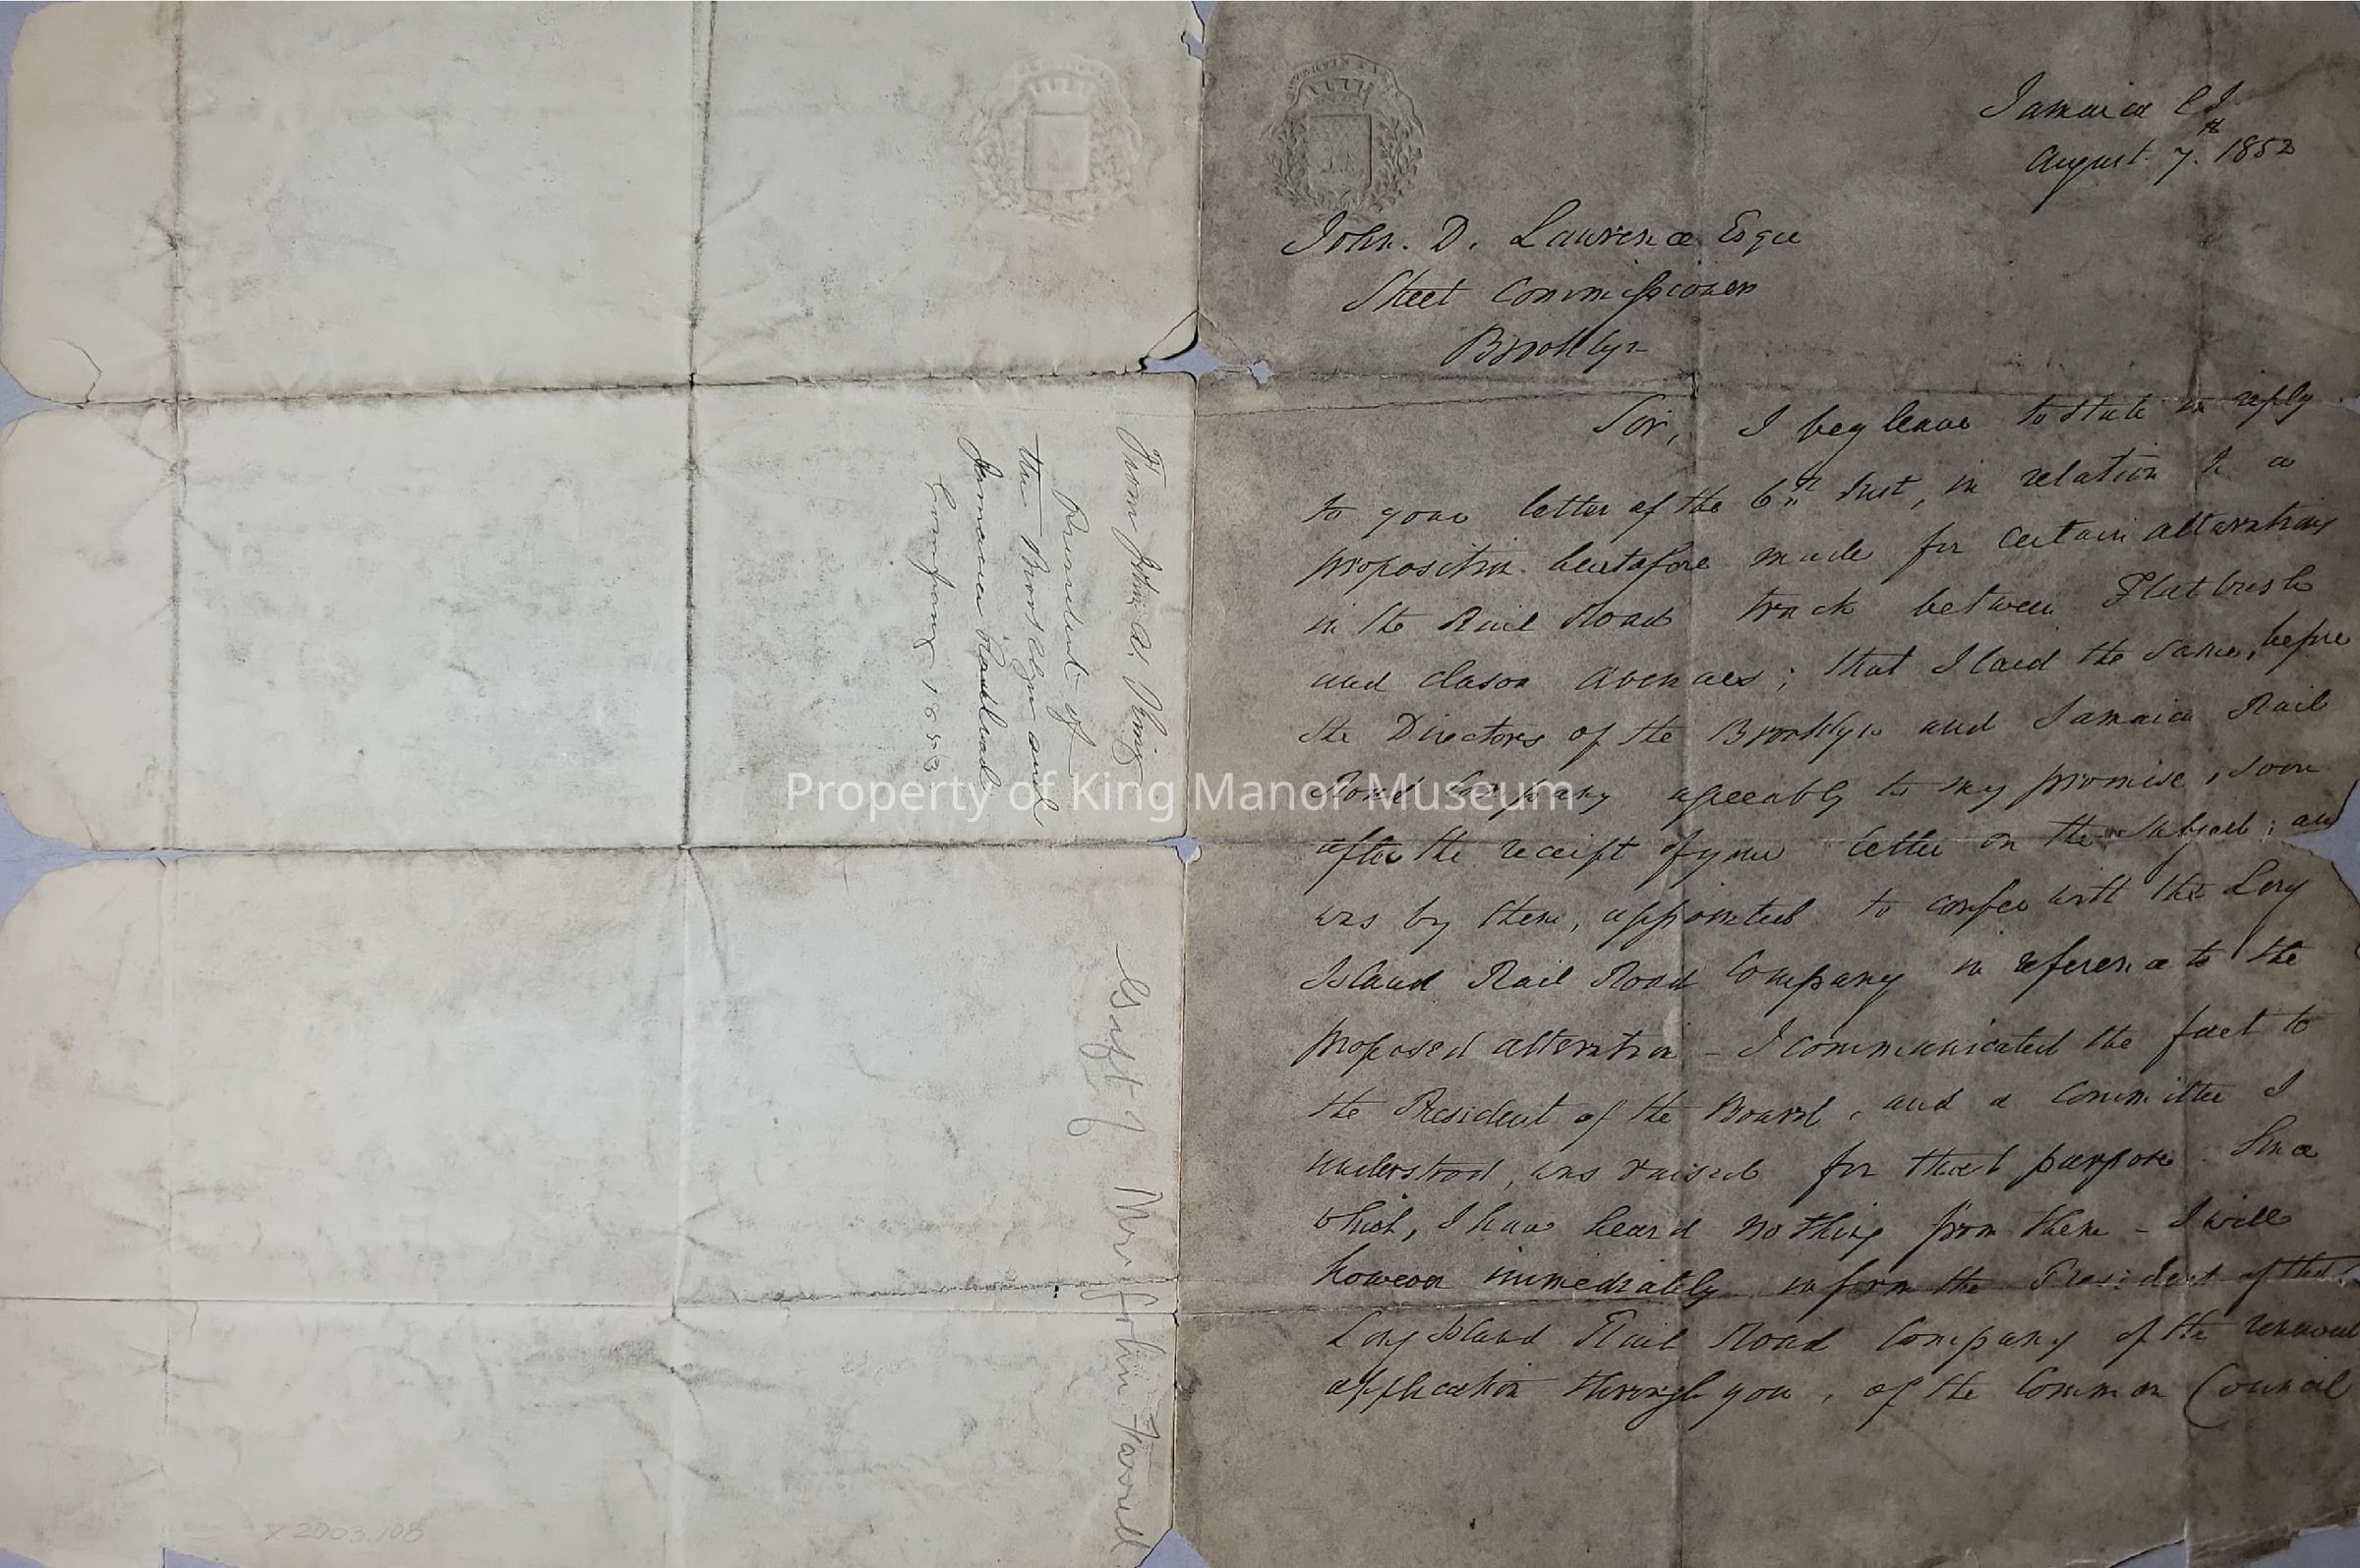 Jamaica L I
August 7th. 1852
John. D. Lawrence Esqre
Street Commissioner
Brooklyn
Sir, I beg leave to state in reply
to your letter of the 6th Inst, in relation to a
proposition heretofore made for certain alterations
in the Rail Road track between Flatbush
and Clason Avenues; that I laid the same, before
the Directors of the Brooklyn and Jamaica Rail
Road Company agreeably to my promise, soon
after the receipt of your letter on the subject; and
was by them, appointed to confer with the Long
Island Rail Road Company in reference to the
proposed alteration - I communicated the fact to
the President of the Board, and a committee I
understood, was raised for that purpose. Since
which, I have heard nothing from them - I will
however immediately inform the President of the
Long Island Rail Road Company of the renewed
application through you, of the Common Council
From John A. King
President of
the Brooklyn and
Jamaica Railroad
Company 1853
Gift of Mrs John Farrell
X2003.108
Property of King Manor Museum